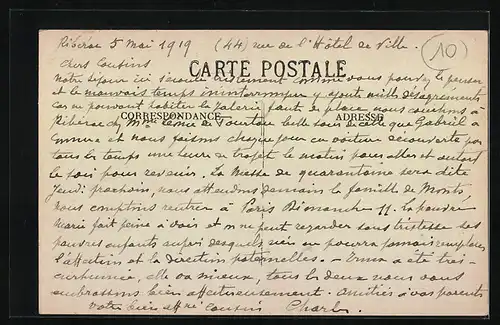 Ribérac 5 Mai 1919 (44) rue de l'Hôtel de Ville.
(10)
chers Cousins
CARTE POSTALE
Notre séjour ici s'écoule tristement comme vous pouvez le penser
et le mauvais temps ininterrompu y ajoute mille désagréments
Car ne pouvant habiter la faute de place, nous couchons à
CORRESPONDANCE ADRESSE
Ribérac chez Mme de Tourtou belle sœur que Gabriel a
connue et nous faisons chaque jour en voiture découverte par
tous les temps une heure de trajet le matin pour aller et autant
le soir pour revenir. La Messe de quarantaine sera dite
Jeudi prochain, nous attendons demain la famille de
nous comptons rentrer à Paris Dimanche 11. La pauvre
Marie fait peine à voir et on ne peut regarder sans tristesse ses
pauvres enfants auprès desquels rien ne pourra jamais remplacer
l'affection et la direction paternelles. - a été très
enrhumée, elle va mieux, tous les deux nous vous
embrassons bien affectueusement. Amitiés à vos parents
Votre bien affné cousin Charles